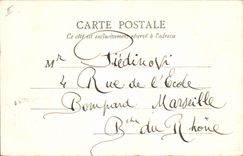 CARTE POSTALE
Ce côté est exclusivement réservé à l'adresse
Mr Diédinovi
4 Rue de l'Ecole
Bompard Marseille
Bces du Rhône